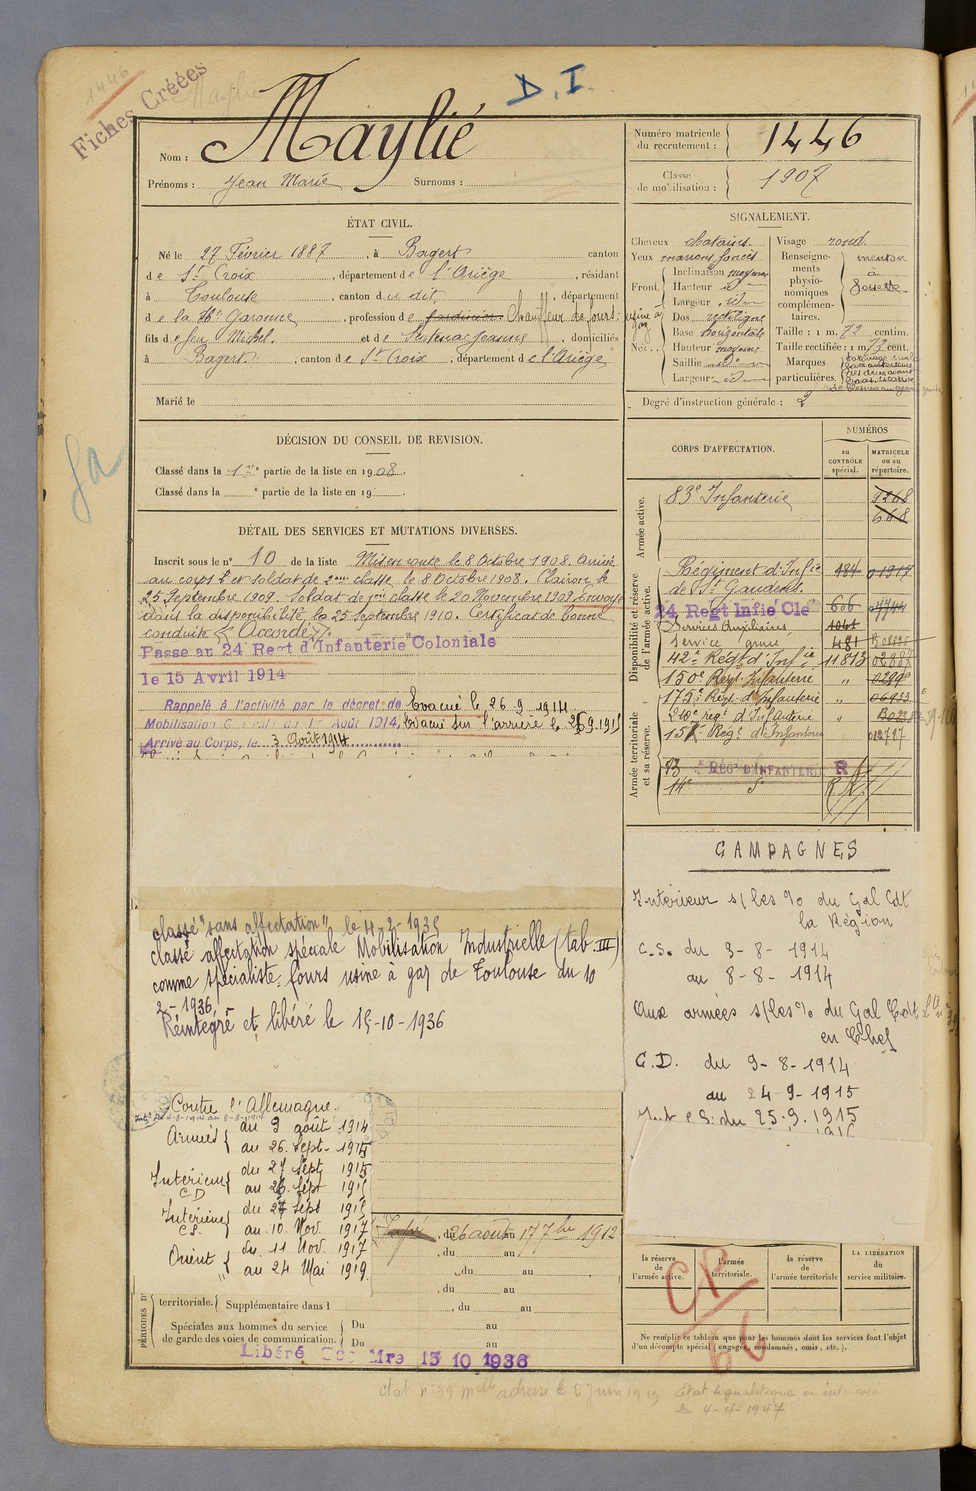 1446
Fiches Créées
D.I.
Nom : Maylié
Prénoms : Jean Marie Surnoms :
Numéro matricule du recrutement : 1446
Classe de mobilisation : 1907
ÉTAT CIVIL.
Né le 27 Février 1887, à Bagert canton
de St Croix, département de l'Ariège, résidant
à Toulouse, canton du dit, département
de la Hte Garonne, profession de jardinier Chauffeur de fours: usine à gaz
fils de feu Michel et de Sentenac Jeanne, domiciliés
à Bagert, canton de St Croix, département de l'Ariège
Marié le
SIGNALEMENT.
Cheveux chatains.
Yeux marrons foncés
Front. Inclinaison moyenne
Hauteur id
Largeur id
Nez. Dos rectiligne
Base horizontale
Hauteur moyenne
Saillie do
Largeur id
Visage rond.
Renseignements physionomiques complémentaires. menton à fossette
Taille : 1 m. 72 centim.
Taille rectifiée : 1 m. 73 cent.
Marques particulières.
Degré d'instruction générale : 2
DÉCISION DU CONSEIL DE REVISION.
Classé dans la 1re partie de la liste en 1908.
Classé dans la e partie de la liste en 19
DÉTAIL DES SERVICES ET MUTATIONS DIVERSES.
Inscrit sous le n° 10 de la liste Mis en route le 8 Octobre 1908. Arrivé
au corps et soldat de 2eme classe le 8 Octobre 1908. Clairon le
25 Septembre 1909. Soldat de 1re classe le 20 Novembre 1909 Envoyé
dans la disponibilité le 25 Septembre 1910. Certificat de bonne
conduite "Accordé".
Passe au 24 Regt d'Infanterie Coloniale
le 15 Avril 1914
Rappelé à l'activité par le décret de Evacué le 26.9.1914.
Mobilisation Générale du 1er Août 1914, Evacué sur l'arrière le 25.9.1915
Arrivé au Corps, le 3 Août 1914
classé "sans affectation" le 4-2-1935
classé affectation spéciale Mobilisation Industrielle (tab III)
comme spécialiste fours usine à gaz de Toulouse du 10
2-1936.
Réintégré et libéré le 15-10-1936
Contre l'Allemagne.
Armées du 9 août 1914
au 26 Sept. 1915
Intérieur CD du 27 Sept 1915
au 26 Sept 1915
Intérieur CS. du 27 Sept 1915
au 10 Nov. 1917
Orient du 11 Nov. 1917
au 24 Mai 1919.
, du 26 août au 17 7bre 1912
, du au
, du au
, du au
, du au
PÉRIODES D'
territoriale. Supplémentaire dans l
Spéciales aux hommes du service de garde des voies de communication. Du au
Du au
Libéré Mre 15 10 1936
CORPS D'AFFECTATION.
NUMÉROS
au CONTRÔLE spécial.
MATRICULE ou au répertoire.
Armée active.
83e Infanterie 9268
668
Disponibilité et réserve de l'armée active.
Régiment d'Infie 484 01917
de St Gaudens.
24 Regt Infie Cle 606
Services Auxiliaires
Service armé 481
42e Régt d'Infie 11813 02887
150e Régt Infanterie "
175e Régt d'Infanterie " 06933
Armée territoriale et sa réserve.
210e regt d'Infanterie "
15e Regt d'Infanterie
83e REGt D'INFANTERIE R
14e d°
CAMPAGNES
Intérieur s/les %o du Gal Cdt
la Région
C.S. du 3-8-1914
au 8-8-1914
Aux armées s/les %o du Gal Cdt
en Chef
C.D. du 9-8-1914
au 24-9-1915
Int C.S. du 25.9.1915
la réserve de l'armée active.
l'armée territoriale.
la réserve de l'armée territoriale
LA LIBÉRATION du service militaire.
CP
66
Ne remplir ce tableau que pour les hommes dont les services font l'objet
d'un décompte spécial (engagés, condamnés, omis, etc.).
état n° 39 adresse le 6 Juin 1919
Etat signalétique
le 4-4-1947